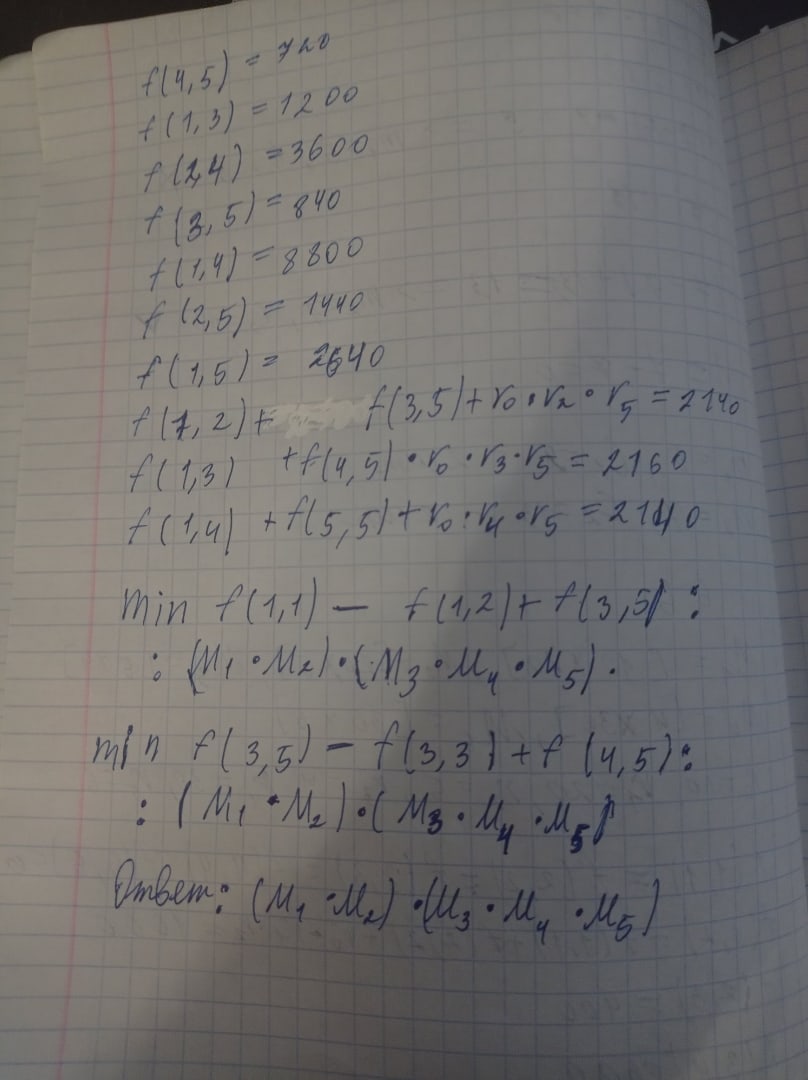 f(4,5) = 720
f(1,3) = 1200
f(2,4) = 3600
f(3,5) = 840
f(1,4) = 8800
f(2,5) = 1440
f(1,5) = 2640
f(1,2)+ f(3,5)+r₀·r₂·r₅=2140
f(1,3) +f(4,5)·r₀·r₃·r₅=2160
f(1,4) +f(5,5)+r₀·r₄·r₅=2140
min f(1,1) — f(1,2)+f(3,5) :
: (M₁·M₂)·(M₃·M₄·M₅).
min f(3,5) — f(3,3)+f(4,5):
: (M₁·M₂)·(M₃·M₄·M₅)
Ответ: (M₁·M₂)·(M₃·M₄·M₅)